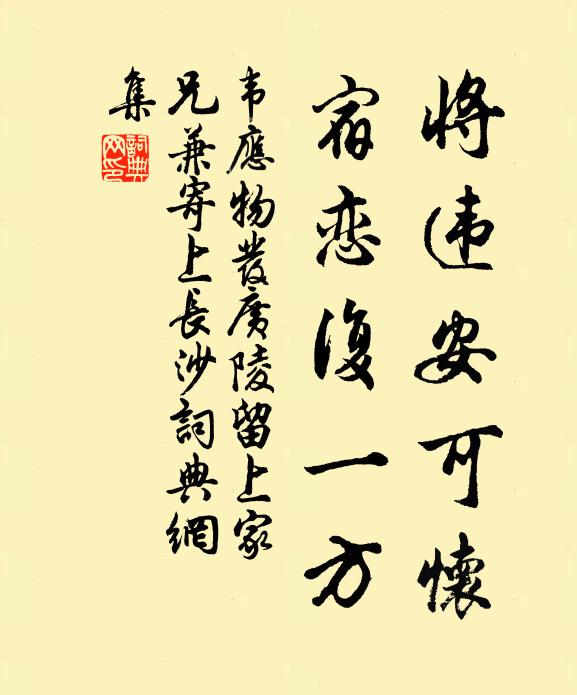 将违安可懷
宿恋復一方
韦應物發廣陵留上家
兄兼寄上長沙詞典網
集
詞典
网印